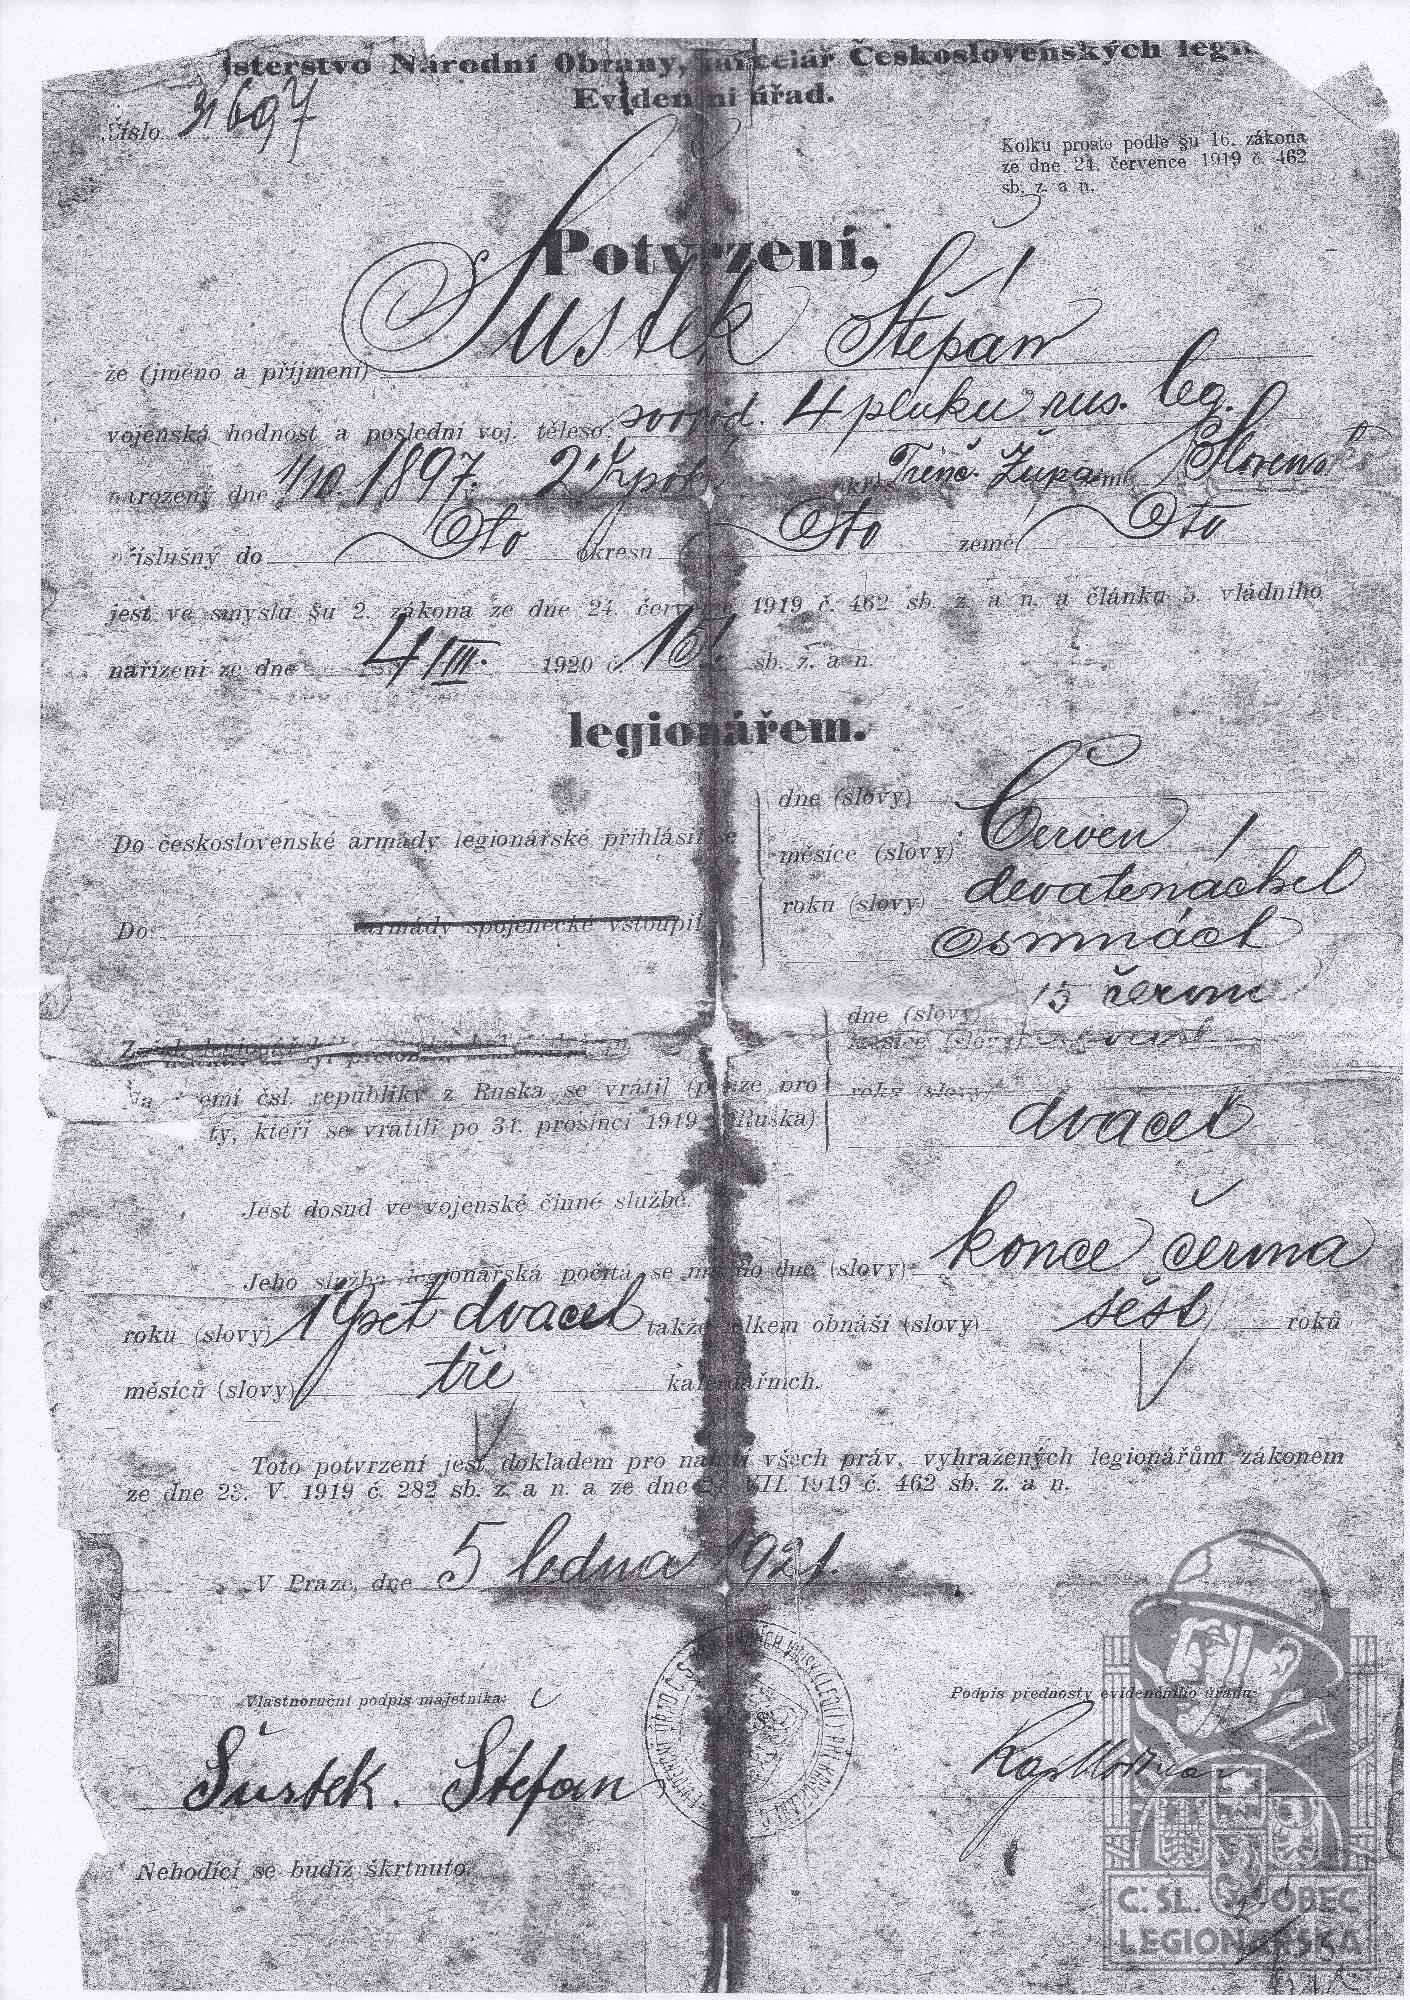 isterstvo Národní Obrany, kancelář Československých legií
Evidenční úřad.
Číslo 31697
Kolku prosto podle §u 16. zákona
ze dne 24. července 1919 č. 462
sb. z. a n.
Potvrzení,
že (jméno a příjmení) Šustek Štěpán
vojenská hodnost a poslední voj. těleso: svobod. 4 pluku rus. leg.
narozený dne 1/10. 1897. Trenč. Župa země Slovensko
příslušný do Dto okresu Dto země Dto
jest ve smyslu §u 2. zákona ze dne 24. července 1919 č. 462 sb. z. a n. a článku 3. vládního
nařízení ze dne 4/III. 1920 č. 151 sb. z. a n.
legionářem.
dne (slovy)
Do československé armády legionářské přihlásil se
měsíce (slovy) Červen
roku (slovy) devatenáchel
Do armády spojenecké vstoupil
Osmnáct
15 června
dne (slovy)
měsíce (slovy)
Na území čsl. republiky z Ruska se vrátil (pouze pro
roku (slovy)
ty, kteří se vrátili po 31. prosinci 1919 z Ruska)
dvacet
Jest dosud ve vojenské činné službě.
Jeho služba legionářská počítá se nutno dne (slovy) konce června
roku (slovy) 19pet dvacet takže celkem obnáší (slovy) šest roků
měsíců (slovy) tři kalendářních.
Toto potvrzení jest dokladem pro nabytí všech práv, vyhražených legionářům zákonem
ze dne 23. V. 1919 č. 282 sb. z. a n. a ze dne 24. VII. 1919 č. 462 sb. z. a n.
V Praze, dne 5 ledna 1921.
Vlastnoruční podpis majetníka:
Podpis přednosty evidenčního úřadu:
Šustek. Štefan
Nehodící se budiž škrtnuto.
Č. SL. OBEC
LEGIONÁŘSKÁ